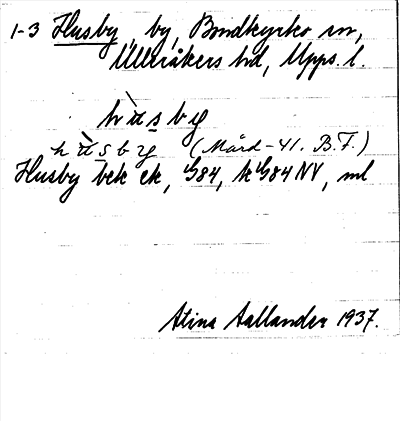 1-3 Husby, by, Bondkyrko sn,
Ulleråkers hd, Upps. l.
hùsby
hùsby (Mård -41. B.F.)
Husby bek ek, G84, kG84NV, ml
Stina Aallander 1937.